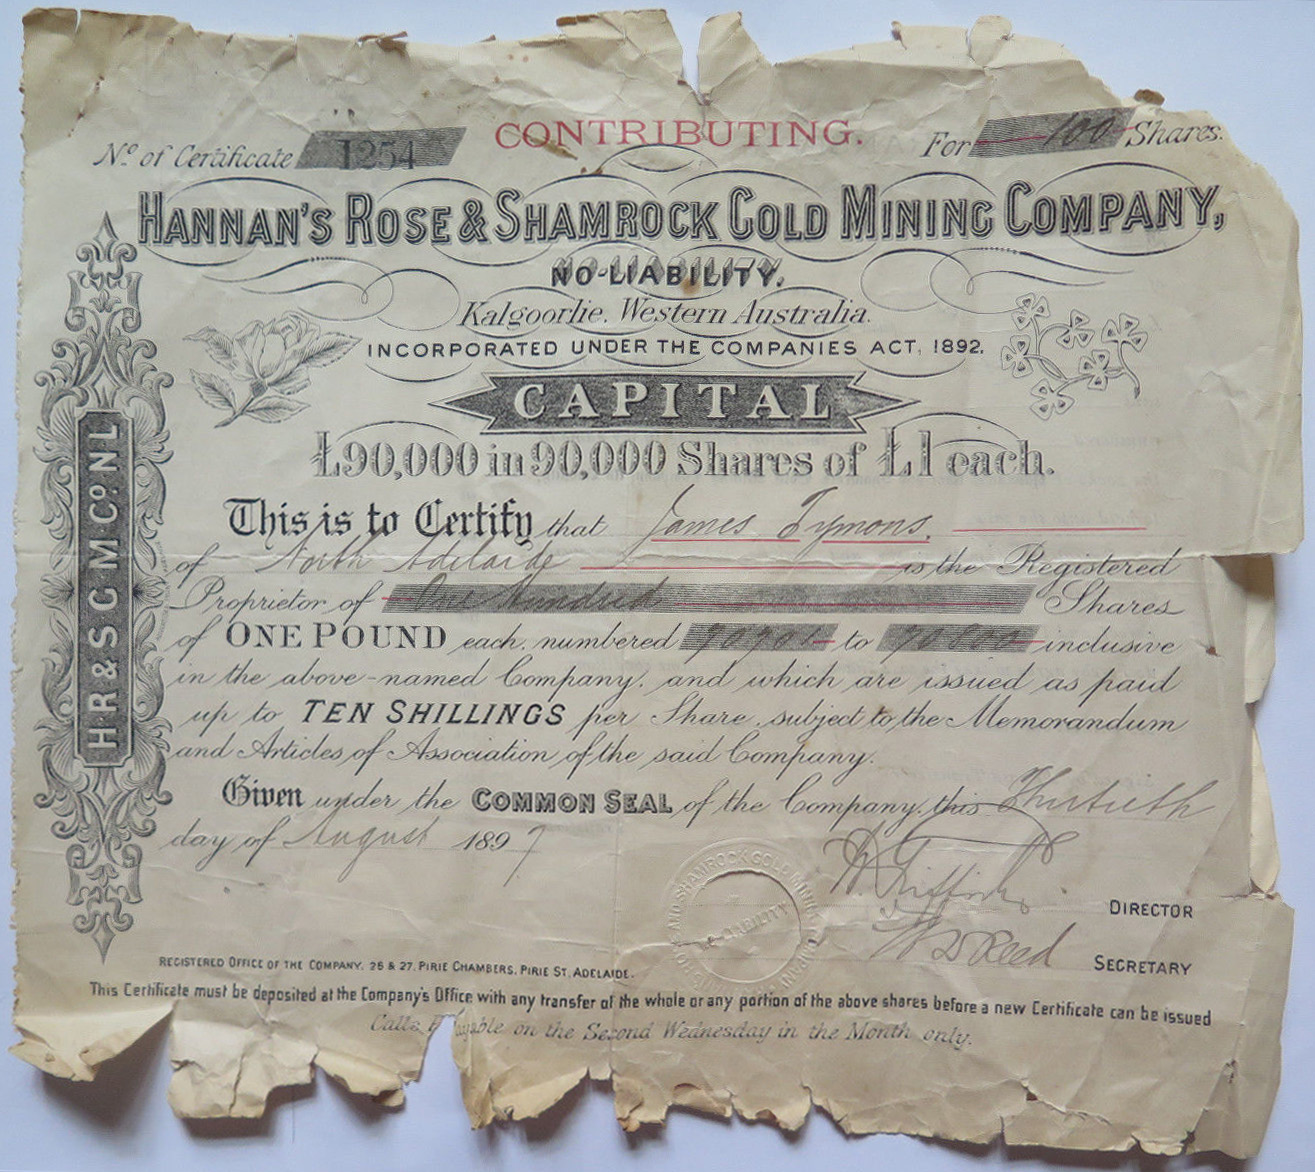 CONTRIBUTING.
No. of Certificate 1254 For 100 Shares.
HANNAN'S ROSE & SHAMROCK GOLD MINING COMPANY,
NO-LIABILITY.
Kalgoorlie, Western Australia.
INCORPORATED UNDER THE COMPANIES ACT, 1892.
CAPITAL
£90,000 in 90,000 Shares of £1 each.
This is to Certify that James Tymons.
of North Adelaide is the Registered
Proprietor of One Hundred Shares
of ONE POUND each, numbered to inclusive
in the above-named Company, and which are issued as paid
up to TEN SHILLINGS per Share, subject to the Memorandum
and Articles of Association of the said Company.
Given under the COMMON SEAL of the Company, this Thirtieth
day of August 1897
DIRECTOR
W D Reed SECRETARY
REGISTERED OFFICE OF THE COMPANY, 26 & 27, PIRIE CHAMBERS, PIRIE ST, ADELAIDE.
This Certificate must be deposited at the Company's Office with any transfer of the whole or any portion of the above shares before a new Certificate can be issued
Calls payable on the Second Wednesday in the Month only.
H.R & S G M Co. N L